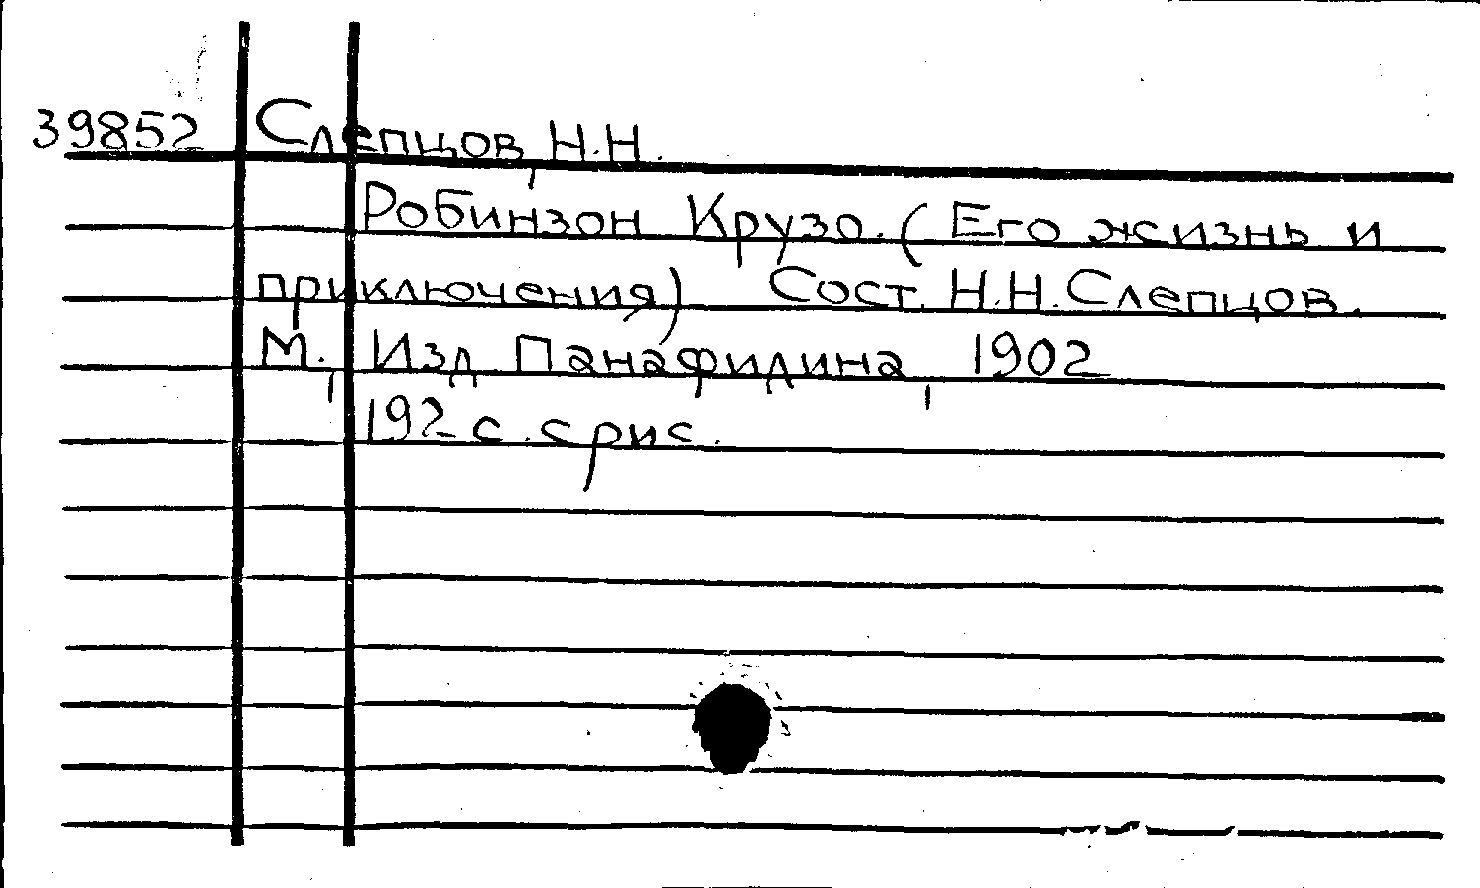 39852 Слепцов, Н.Н.
Робинзон Крузо. (Его жизнь и
приключения) Сост. Н.Н.Слепцов.
М., Изд Панафидина, 1902
192 с. с рис.